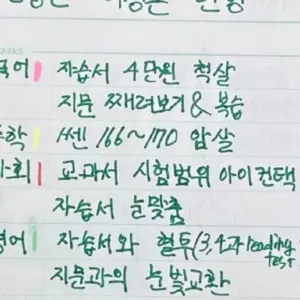 국어 자습서 4단원 척살
지문 째려보기 & 복습
수학 쎈 166~170 암살
사회 교과서 시험범위 아이컨택
자습서 눈맞춤
영어 자습서와 혈투(3,4과 reading test)
지문과의 눈빛교환